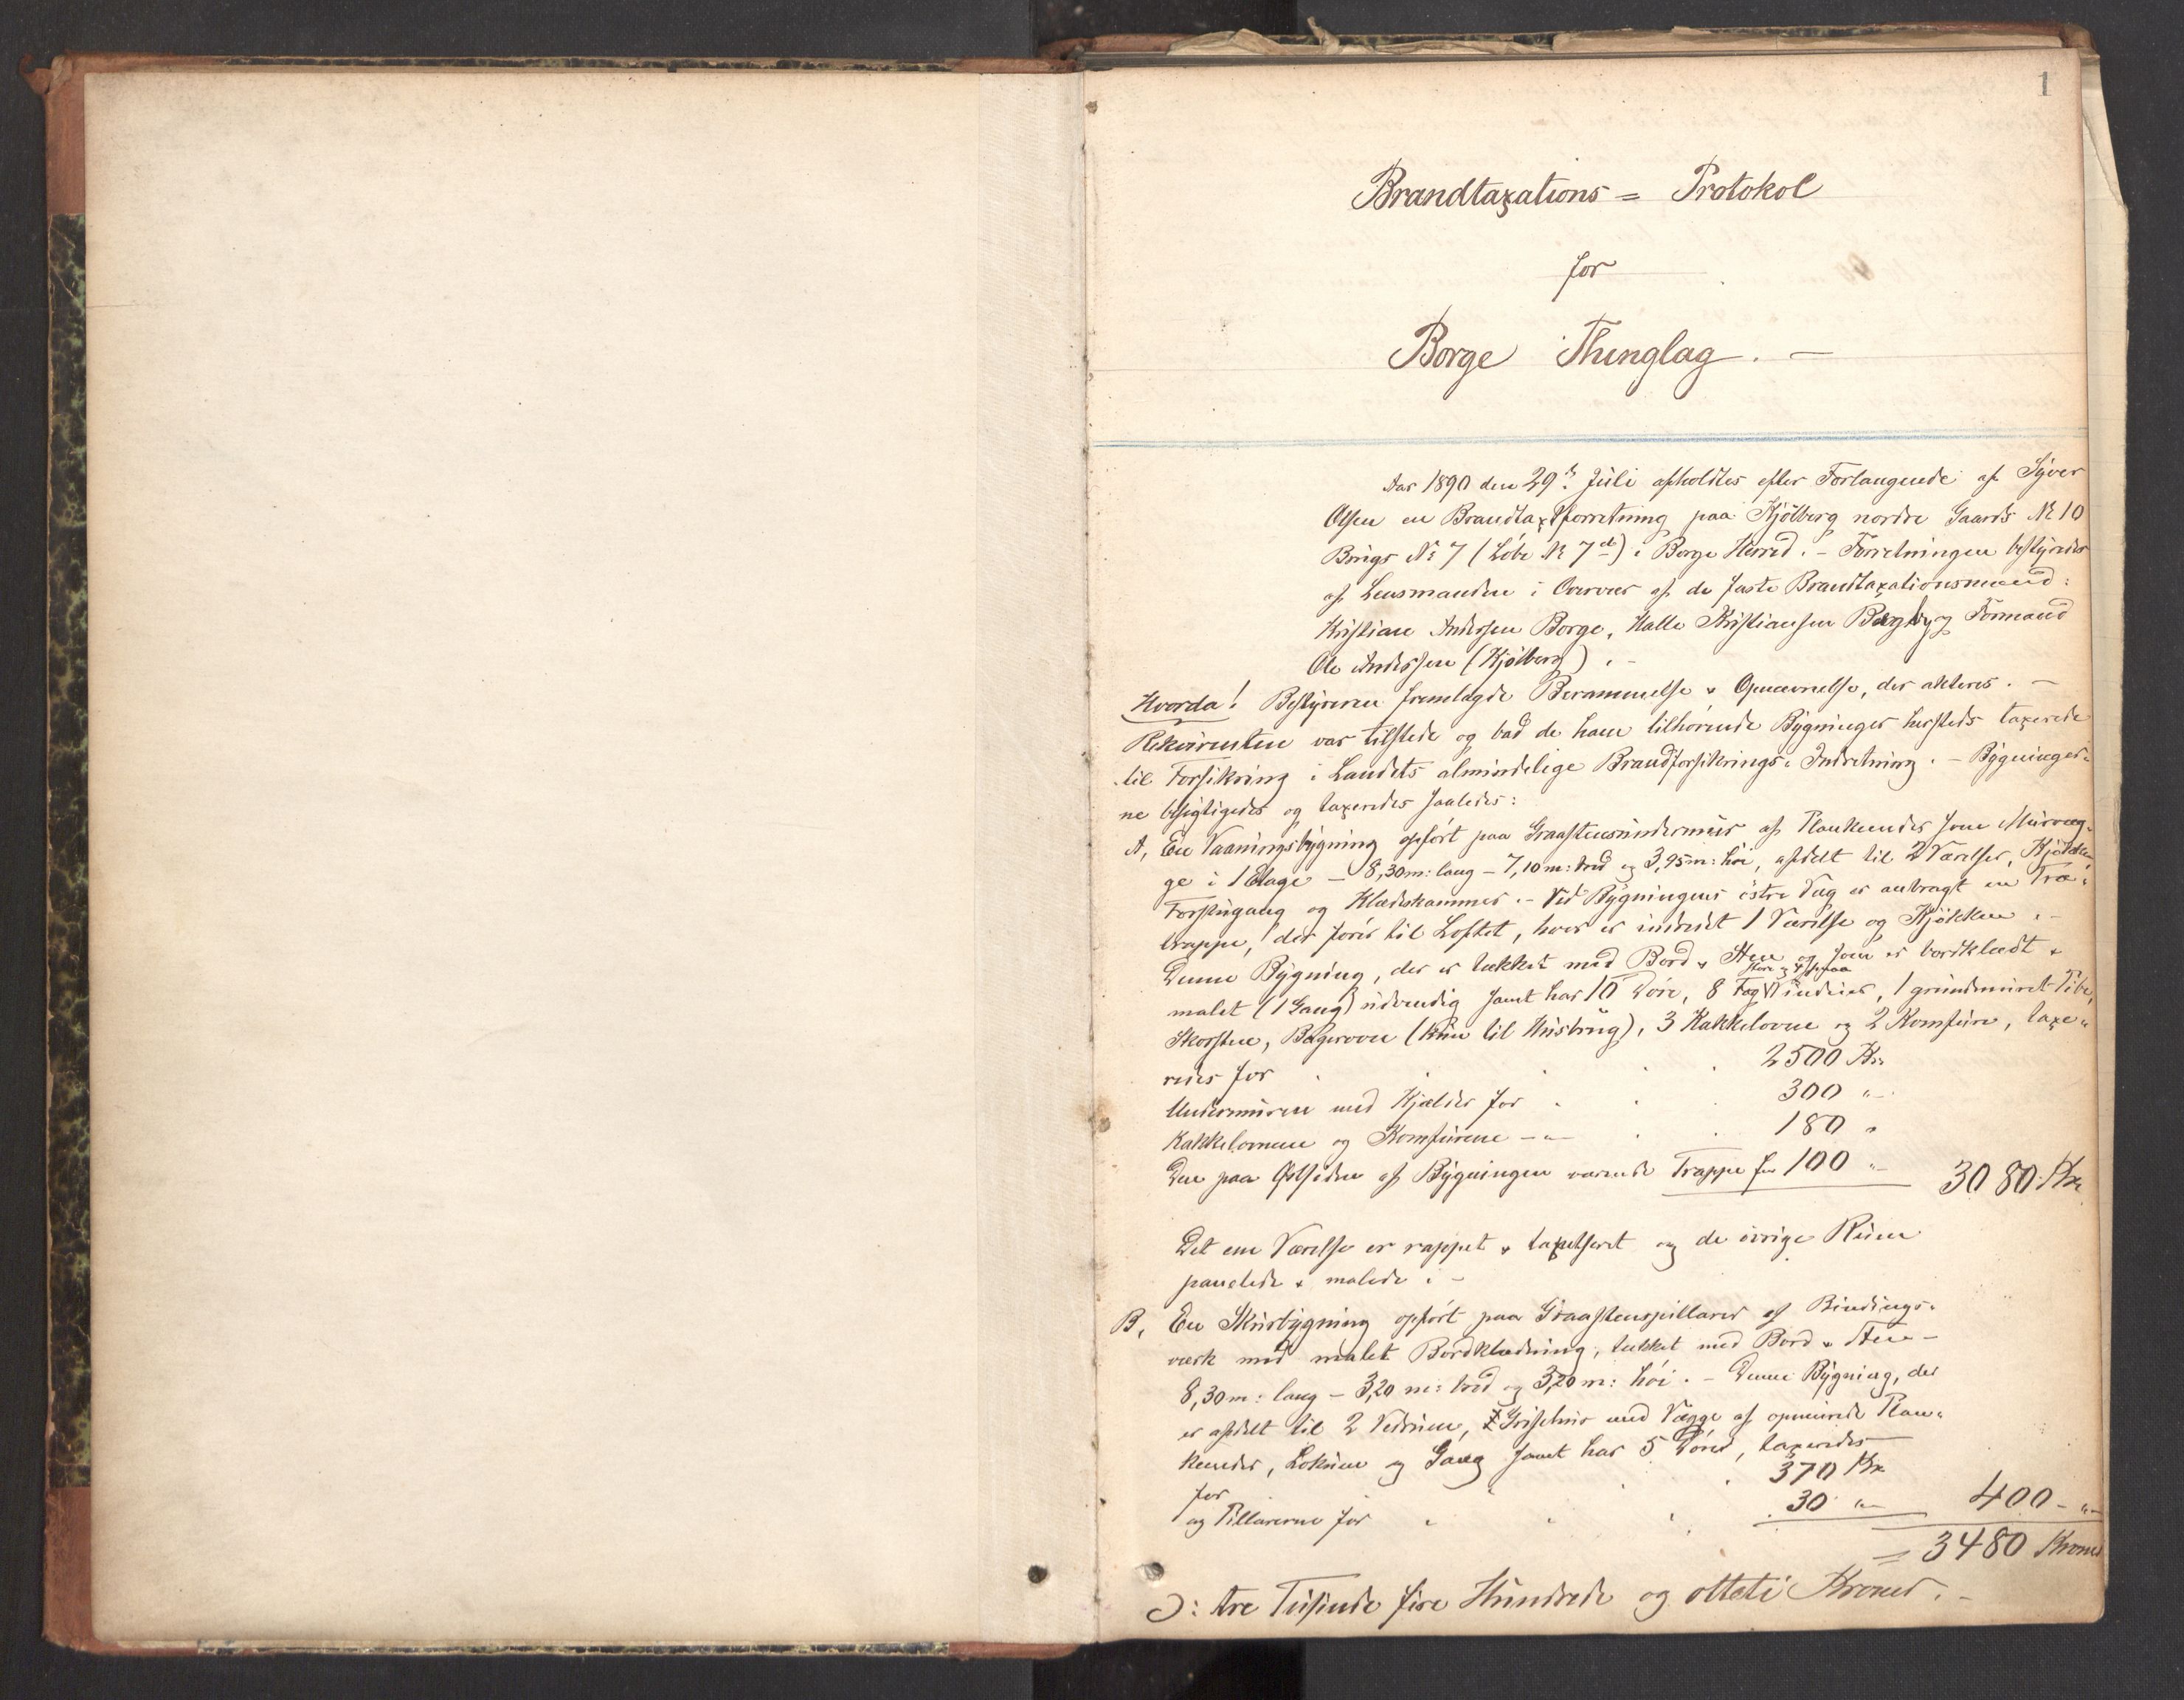 1
Brandtaxations = Protokol
for
Borge Thinglag. —
Aar 1890 den 29de Juli afholdtes efter Forlangende af Syver
Olsen en Brandtaxtforretning paa Kjölberg nordre Gaards No 10
Brugs No 7 (Löbe No 7d) i Borge Herred. – Forretningen bestyredes
af Lensmanden i Overvær af de faste Brandtaxationsmænd:
Kristian Andersen Borge, Halle Kristiansen Bergby og Formand
Ole Andersen (Kjölberg). –
Hvorda! Bestyreren fremlagde Berammelse & Opnævnelse, der akteres. —
Rekvirenten var tilstede og bad de ham tilhörende Bygninger hersteds taxerede
til Forsikring i Landets almindelige Brandforsikrings-Indretning. – Bygninger-
ne besigtigedes og taxeredes saaledes:
A, En Vaaningsbygning opfört paa Graastensundermur af Plankeender som Murvæg-
ge i 1 Etage – 8,30 m: lang – 7,10 m: bred og 3,95 m: höi, afdelt til 2 Værelser, Kjökken,
Forstugang og Klædekammer. – Ved Bygningens östre Væg er anbragt en Træ-
trappe, der förer til Loftet, hvor er indredet 1 Værelse og Kjökken. –
Denne Bygning, der er tækket med Bord & Sten og som er bordklædt &
store og 4 smaa
malet (1 Gang) udvendig samt har 10 Döre, 8 Fag Vinduer, 1 grundmuret Pibe,
Skorsten, Bagerovn (kun til Husbrug), 3 Kakkelovne og 2 Komfure, taxe-
redes for . . . . 2500 Kr.
Undermuren med Kjælder for . . . 300 "
Kakkelovnene og Komfurene – " – . . 180 "
Den paa Östsiden af Bygningen værende Trappe for 100 " 3080 Kr.
Det ene Værelse er rappet & tapetseret og de övrige Rum
panelede & malede. –
B, En Skurbygning opfört paa Graastenspillarer af Bindings-
værk med malet Bordklædning, tækket med Bord & Sten –
8,30 m: lang – 3,20 m: bred og 3,20 m: höi. – Denne Bygning, der
er afdelt til 2 Vedrum, Grisehus med Vægge af opmurede Plan-
keender, Lokum og Gang samt har 5 Döre, taxeredes
for . . . 370 Kr.
og Pillarerne for . . . . 30 " 400 – "
= 3480 Kroner
ɔ: tre Tusinde fire Hundrede og otteti Kroner. –